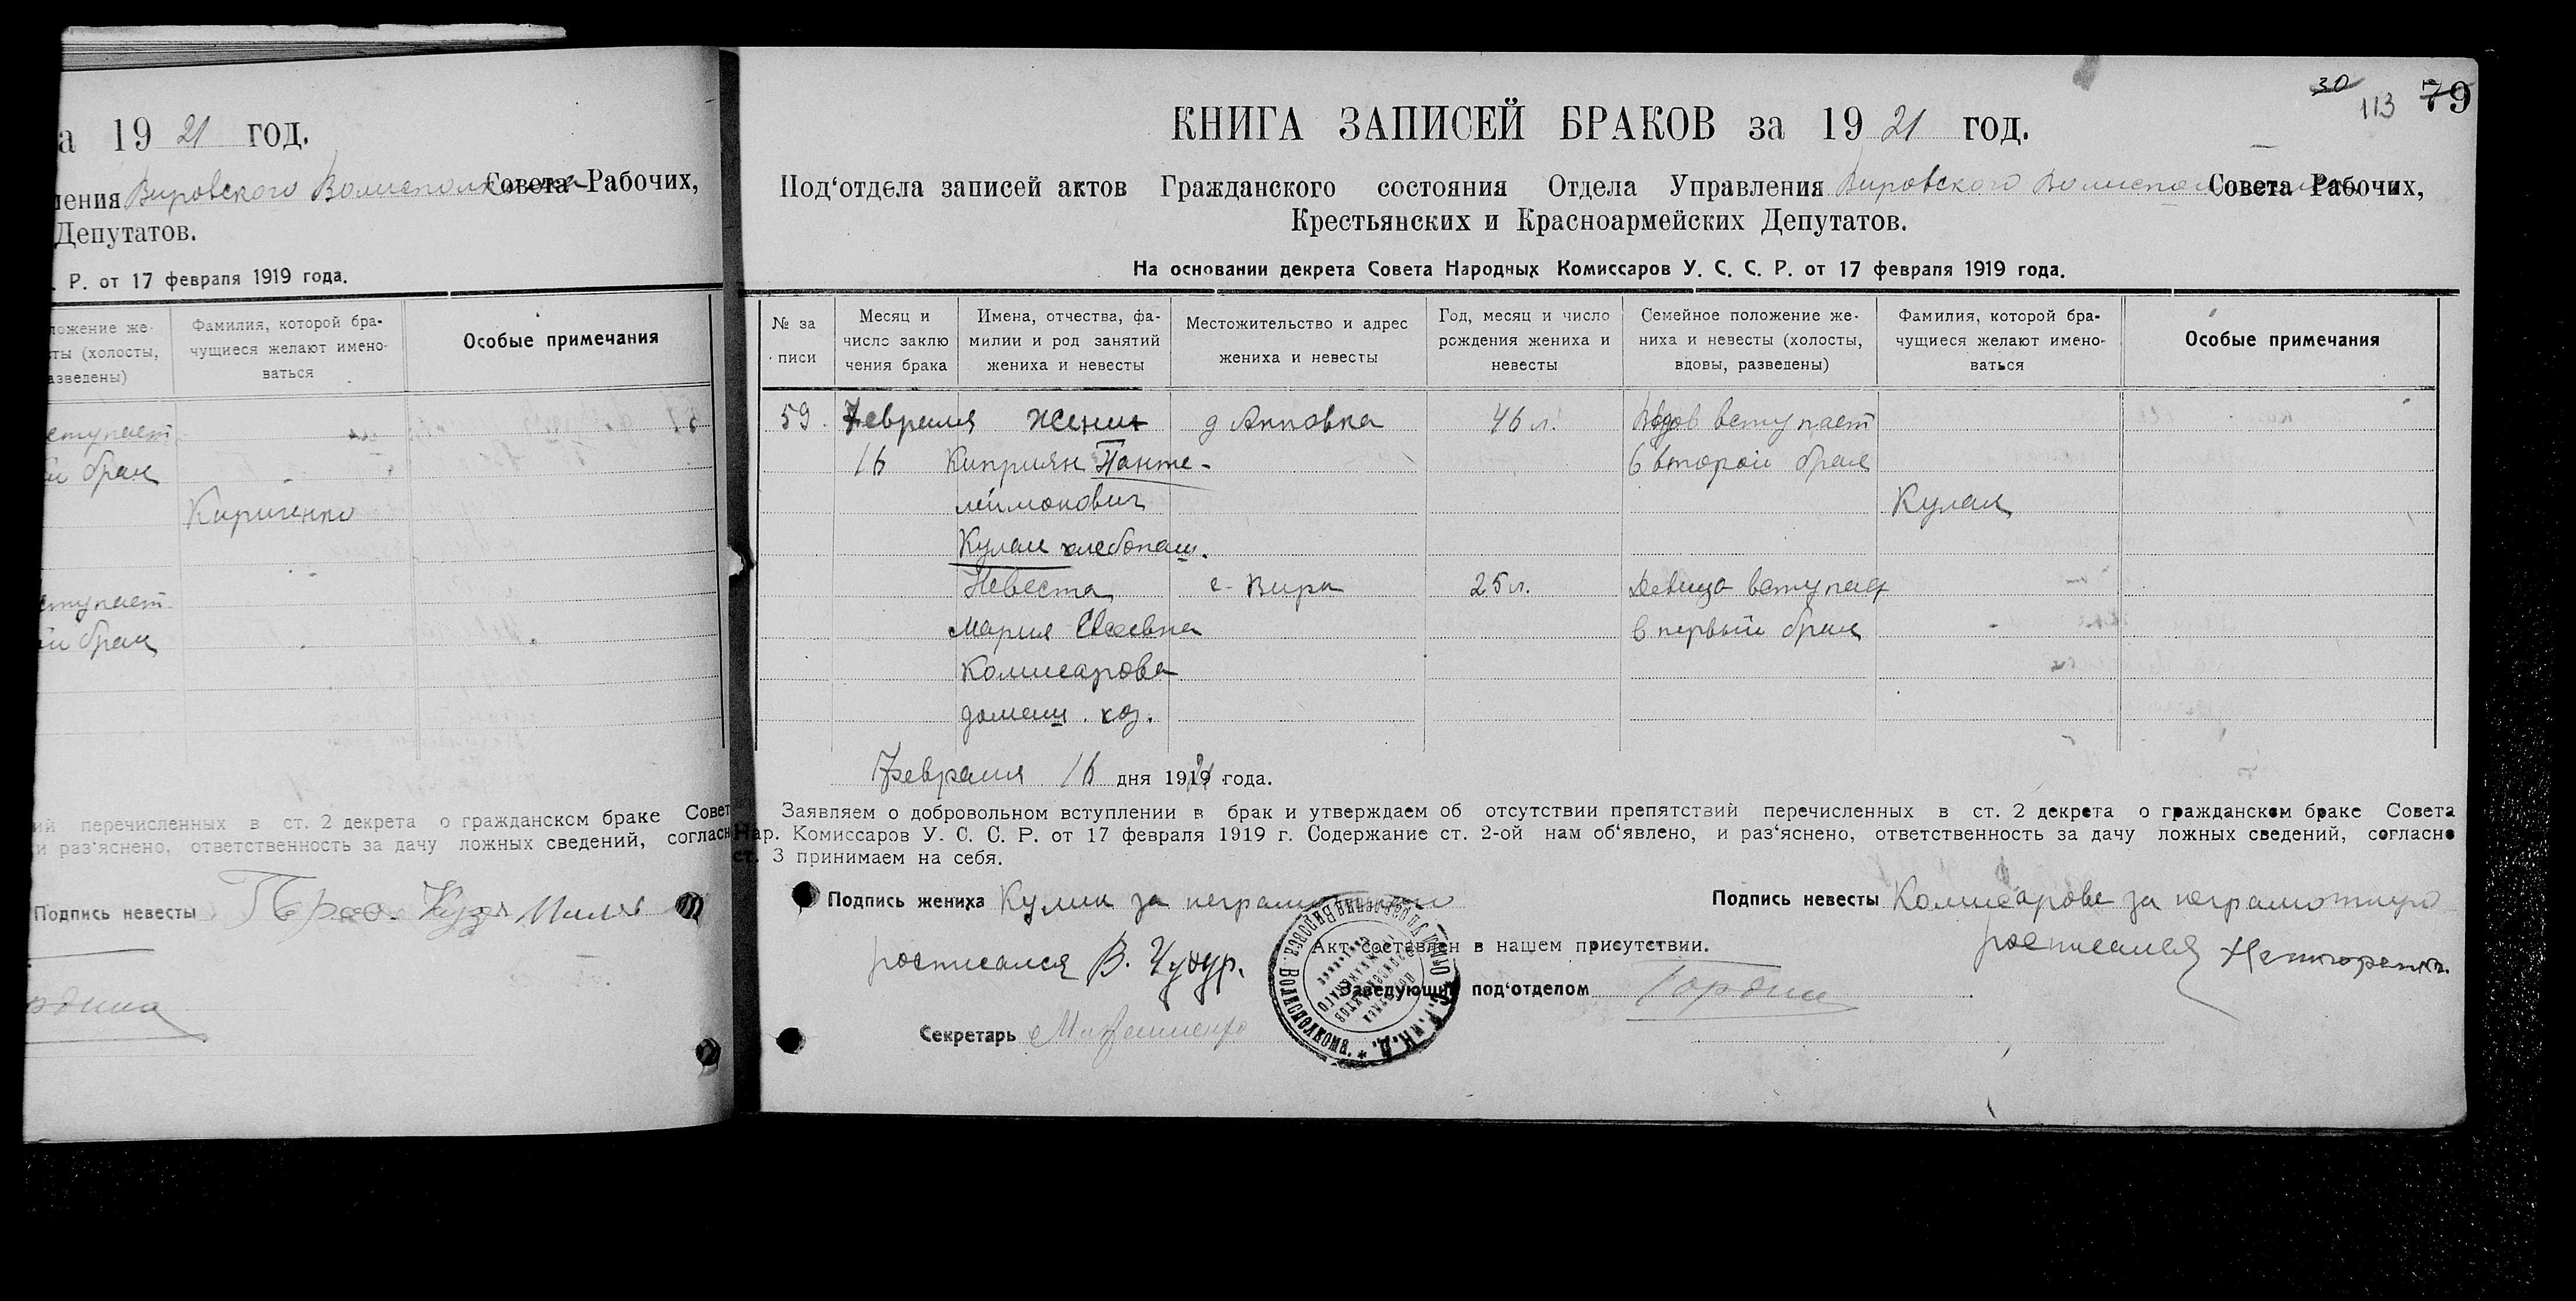 а 19 21 год.
ления Вировского Волисполкома Совета Рабочих,
Депутатов.
. Р. от 17 февраля 1919 года.
ложение же-
ты (холосты,
азведены)
Фамилия, которой бра-
чущиеся желают имено-
ваться
Особые примечания
ступает
й брак
Кириченко
ступает
й брак
ий перечисленных в ст. 2 декрета о гражданском браке Совет
и раз‘яснено, ответственность за дачу ложных сведений, согласн
Подпись невесты
30
113 79
КНИГА ЗАПИСЕЙ БРАКОВ за 19 21 год.
Под‘отдела записей актов Гражданского состояния Отдела Управления Вировского Волисполкома Совета Рабочих,
Крестьянских и Красноармейских Депутатов.
На основании декрета Совета Народных Комиссаров У. С. С. Р. от 17 февраля 1919 года.
№ за
писи
Месяц и
число заклю
чения брака
Имена, отчества, фа-
милии и род занятий
жениха и невесты
Местожительство и адрес
жениха и невесты
Год, месяц и число
рождения жениха и
невесты
Семейное положение же-
ниха и невесты (холосты,
вдовы, разведены)
Фамилия, которой бра-
чущиеся желают имено-
ваться
Особые примечания
59. Февраля Жених д 46 л. Вдов вступает
16 Киприян Панте- в второй брак
леймонович Кулак
Кулак хлебопаш.
Невеста с. Вири 25 л. Девица вступает
Мария Евсеевна в первый брак
Комисарова
домаш. хоз.
Февраля 16 дня 1921 года.
Заявляем о добровольном вступлении в брак и утверждаем об отсутствии препятствий перечисленных в ст. 2 декрета о гражданском браке Совета
Нар. Комиссаров У. С. С. Р. от 17 февраля 1919 г. Содержание ст. 2-ой нам об‘явлено, и раз‘яснено, ответственность за дачу ложных сведений, согласно
ст. 3 принимаем на себя.
Подпись жениха Кулак за неграмотного
росписался В.
Подпись невесты Комисарова за неграмотную
росписался
Акт составлен в нашем присутствии.
Заведующий под‘отделом Гордин
Секретарь